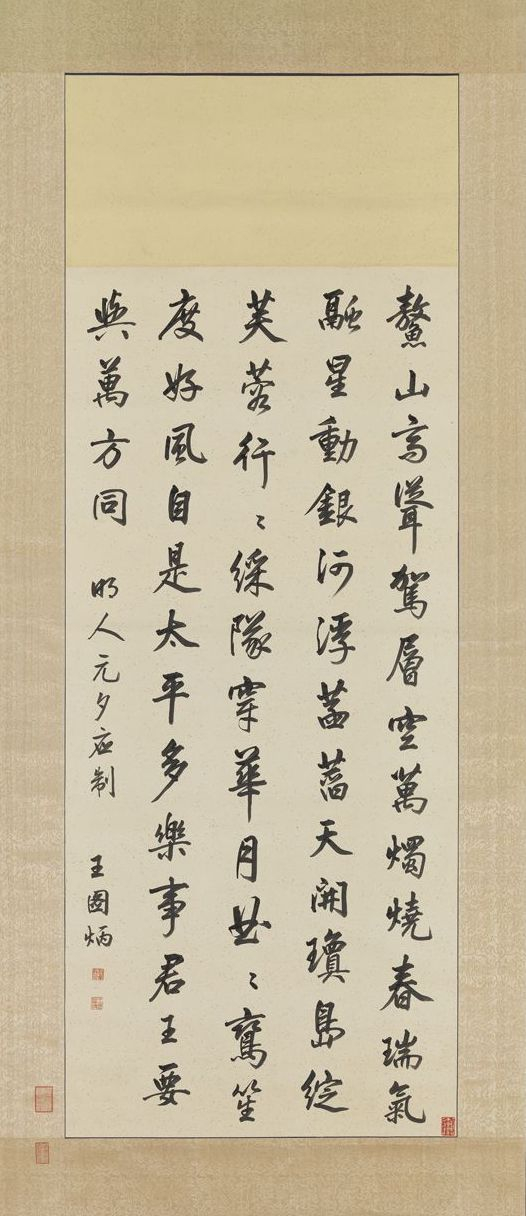 鰲山高聳駕層空萬燭燒春瑞氣
融星動銀河浮菡萏天開瓊島綻
芙蓉行〻綵隊穿華月曲〻鸞笙
度好風自是太平多樂事君王要
與萬方同 明人元夕应制 王圖炳